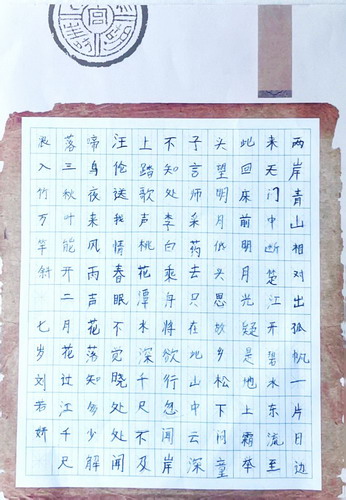 两岸青山相对出孤帆一片日边
来天门中断楚江开碧水东流至
此回床前明月光疑是地上霜举
头望明月低头思故乡松下问童
子言师采药去只在此山中云深
不知处李白乘舟将欲行忽闻岸
上踏歌声桃花潭水深千尺不及
汪伦送我情春眠不觉晓处处闻
啼鸟夜来风雨声花落知多少解
落三秋叶能开二月花过江千尺
浪入竹万竿斜 七岁刘若娇